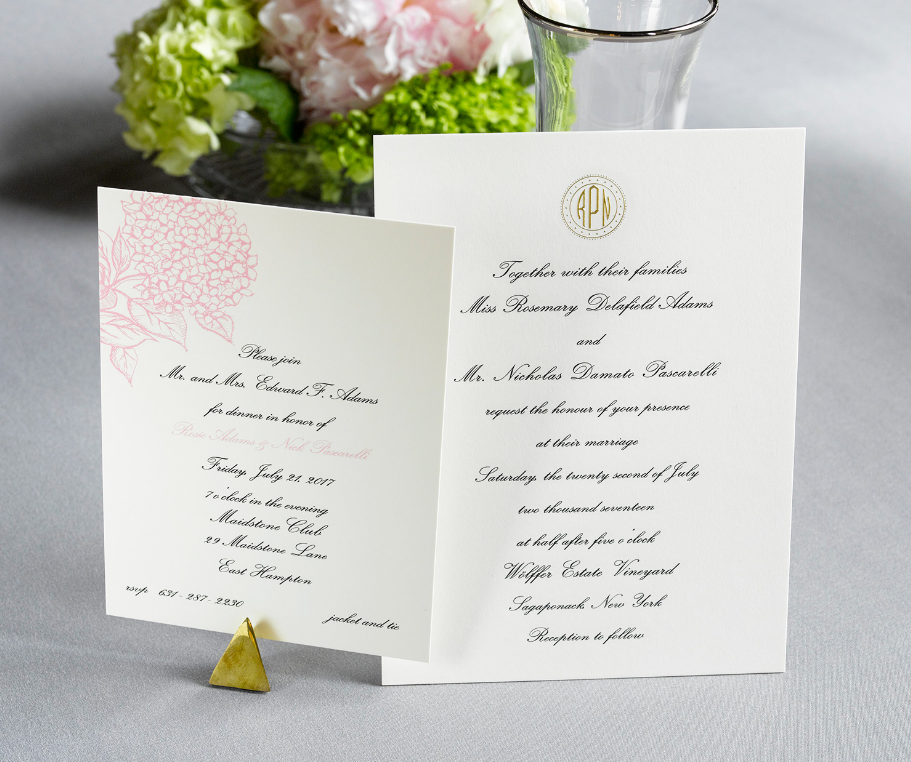 Please join
Mr. and Mrs. Edward F. Adams
for dinner in honor of
Rose Adams & Nick Pascarelli
Friday, July 21, 2017
7 o'clock in the evening
Maidstone Club
29 Maidstone Lane
East Hampton
rsvp 631-287-2230
jacket and tie
RPN
Together with their families
Miss Rosemary Delafield Adams
and
Mr. Nicholas Damato Pascarelli
request the honour of your presence
at their marriage
Saturday, the twenty second of July
two thousand seventeen
at half after five o'clock
Wölffer Estate Vineyard
Sagaponack, New York
Reception to follow